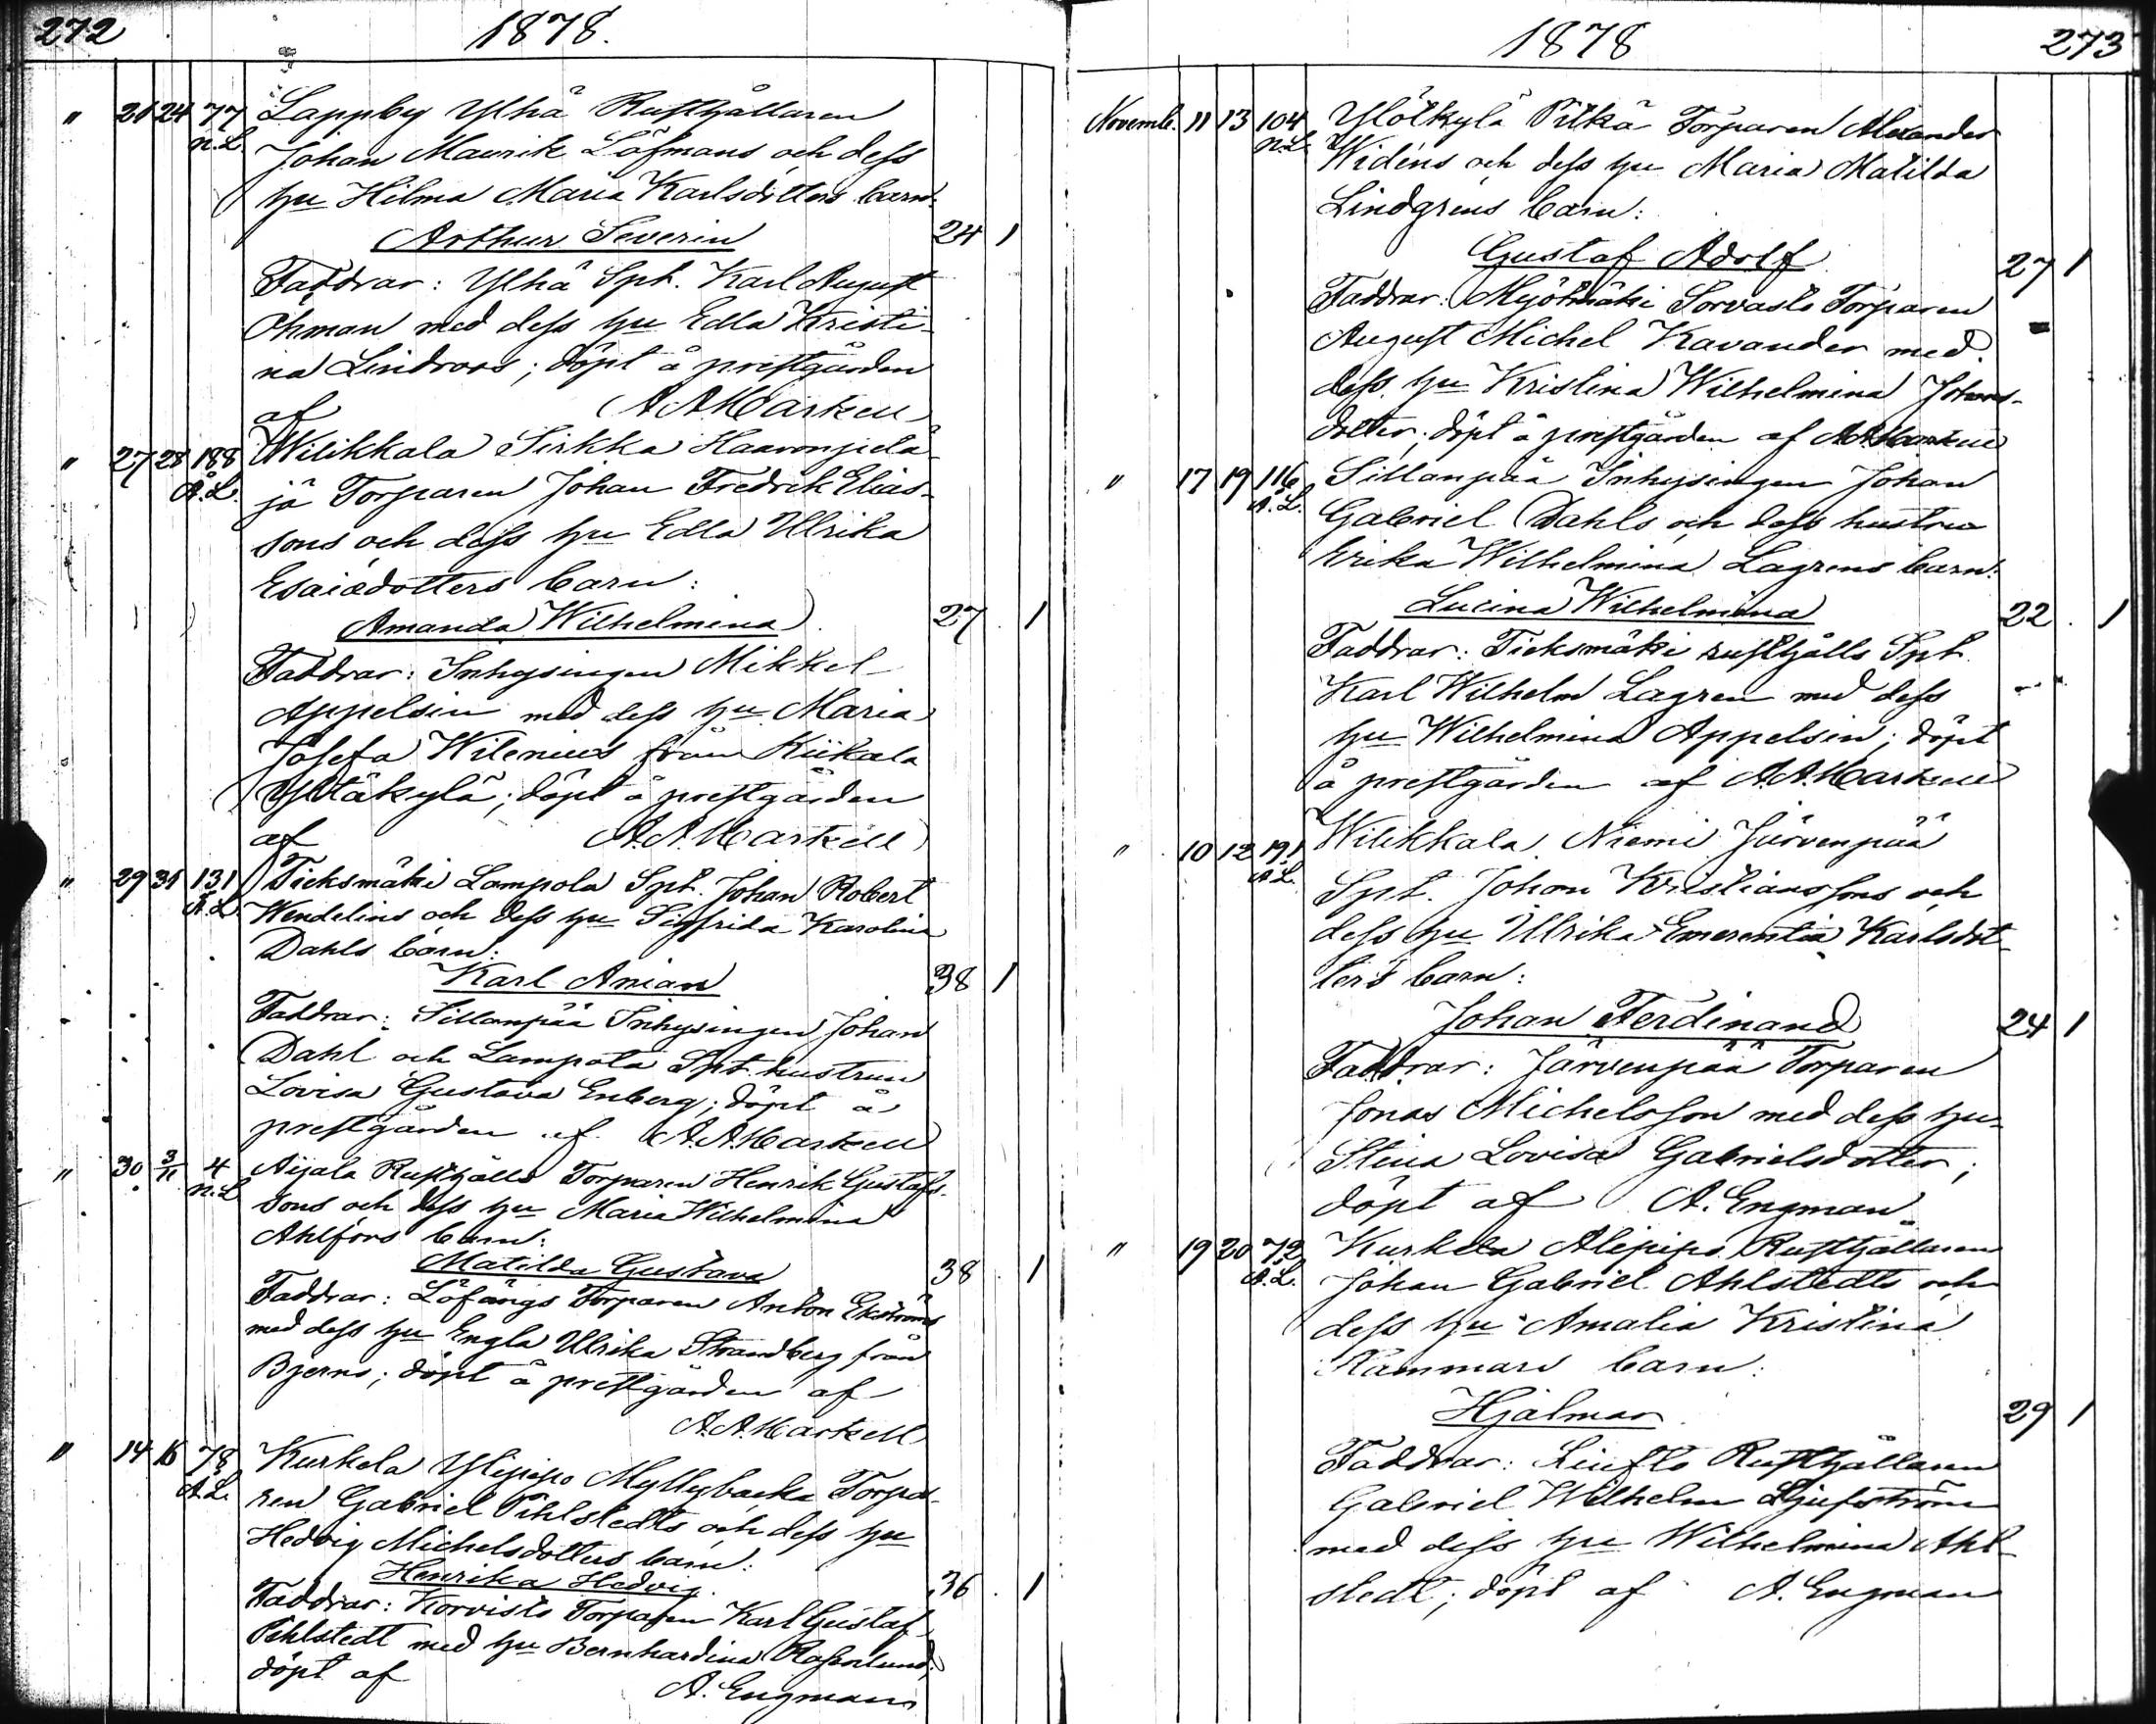 272 1878.
" 21 24 77 Lappby Ylhä Rusthållaren
n.L. Johan Maurik Löfmans och dess
hu Hilma Maria Karlsdotters barn:
Arthur Severin 24 1
Faddrar: Ylhä Sph. Karl August
Öhman med dess hu Edla Kristi-
na Lindroos; döpt å prestgården
af A A Markell
" 27 28 188 Wilikkala Sirkka Haaronjela-
A.L. jä Torparen Johan Fredrik Elias-
sons och dess hu Edla Ulrika
Esaiædotters barn:
Amanda Wilhelmina 27 1
Faddrar: Inhysingen Mikkel
Appelsin med dess hu Maria
Josefa Wilenius från Kiikala
Yltäkylä; döpt å prestgården
af A.A. Markell
" 29 31 131 Ticksmäki Lampola Sph. Johan Robert
A.L. Wendelins och dess hu Sigfrida Karolina
Dahls barn:
Karl Anian 38 1
Faddrar: Sillanpää Inhysingen Johan
Dahl och Lampola Sph. hustrun
Lovisa Gustava Enberg; döpt å
prestgården af A.A. Markell
" 30 3/11 4 Aijala Rusthålls Torparen Henrik Gustafs-
n.L. sons och dess hu Maria Wilhelmina
Ahlfors barn:
Matilda Gustava 38 1
Faddrar: Löfängs Torparen Anton Ekströms
med dess hu Engla Ulrika Strandberg från
Bjerno; döpt å prestgården af
A.A. Markell
" 14 16 78 Kurkela Ylipipo Myllybacka Torpa-
A.L. ren Gabriel Pihlstedts och dess hu
Hedvig Michelsdotters barn:
Henrika Hedvig. 36 1
Faddrar: Korvisto Torparen Karl Gustaf
Pihlstedt med hu Bernhardina Rosenlund;
döpt af A. Engman
1878 273
Novemb. 11 13 104 Ylölkylä Pitkä Torparen Alexander
n.L. Widéns och dess hu Maria Matilda
Lindgrens barn:
Gustaf Adolf 27 1
Faddrar: Myötmäki Sorvasto Torparen
August Michel Kavander med
dess hu Kristina Wilhelmina Johans-
dotter; döpt å prestgården af A.A. Markell
" 17 19 116 Sillanpää Inhysingen Johan
A.L. Gabriel Dahls och dess hustru
Erika Wilhelmina Lagrens barn:
Lucina Wilhelmina 22 1
Faddrar: Ticksmäki rusthålls Sph.
Karl Wilhelm Lagren med dess
hu Wilhelmina Appelsin; döpt
å prestgården af A.A. Markell
" 10 12 191 Wilikkala Niemi Järvenpää
A.L. Sph. Johan Kristianssons och
dess hu Ulrika Emerentia Karlsdot-
ters barn:
Johan Ferdinand 24 1
Faddrar: Järvenpää Torparen
Jonas Michelsson med dess hu
Stina Lovisa Gabrielsdotter;
döpt af A. Engman
" 19 20 72 Kurkela Alipipo Rusthållaren
A.L. Johan Gabriel Ahlstedts och
dess hu Amalia Kristina
Kammars barn:
Hjalmar 29 1
Faddrar: Rusthållaren
Gabriel Wilhelm
med dess hu Wilhelmina Ahl-
stedt; döpt af A. Engman